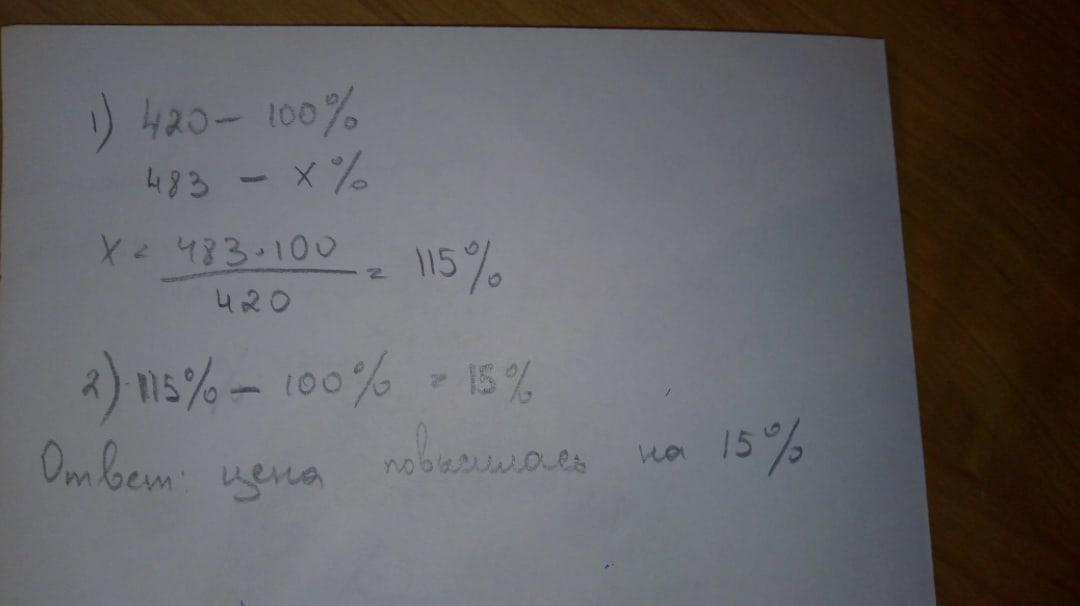 1) 420 – 100%
483 – x%
x = 483·100 / 420 = 115%
2) 115% – 100% = 15%
Ответ: цена повысилась на 15%